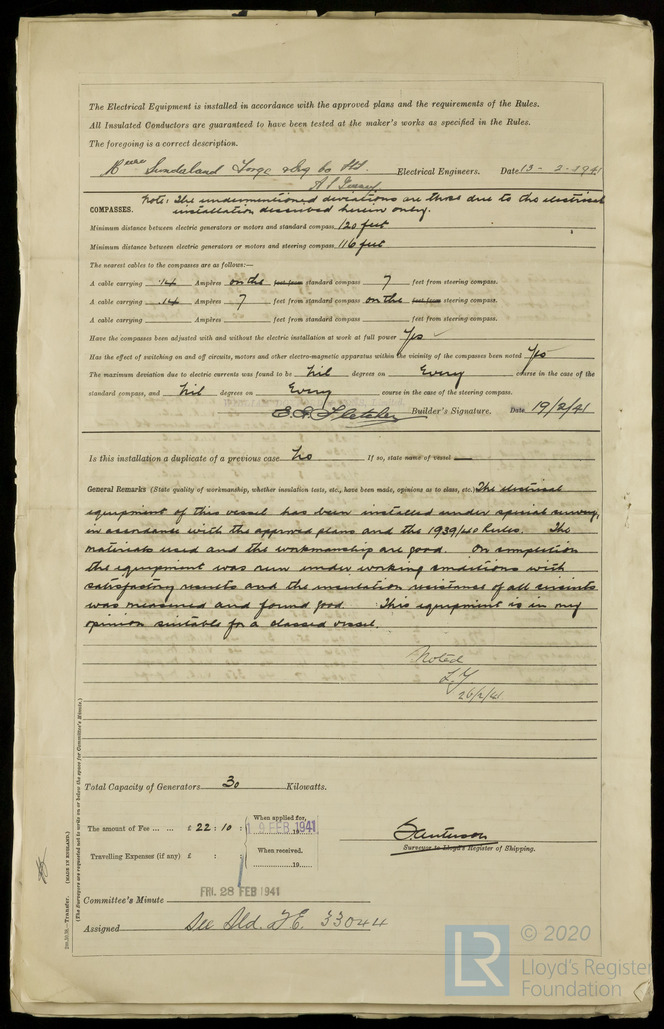 The Electrical Equipment is installed in accordance with the approved plans and the requirements of the Rules.
All Insulated Conductors are guaranteed to have been tested at the maker's works as specified in the Rules.
The foregoing is a correct description.
Sunderland Forge & Eng Co Ltd. Electrical Engineers. Date 13-2-1941
Note: The undermentioned deviations are those due to the electrical
COMPASSES. installation described herein only.
Minimum distance between electric generators or motors and standard compass 120 feet
Minimum distance between electric generators or motors and steering compass 116 feet
The nearest cables to the compasses are as follows:—
A cable carrying .14 Ampères on the feet from standard compass 7 feet from steering compass.
A cable carrying .14 Ampères 7 feet from standard compass on the feet from steering compass.
A cable carrying Ampères feet from standard compass feet from steering compass.
Have the compasses been adjusted with and without the electric installation at work at full power Yes
Has the effect of switching on and off circuits, motors and other electro-magnetic apparatus within the vicinity of the compasses been noted Yes
The maximum deviation due to electric currents was found to be Nil degrees on Every course in the case of the
standard compass, and Nil degrees on Every course in the case of the steering compass.
E. G. Fletcher Builder's Signature. Date 19/2/41
Is this installation a duplicate of a previous case No If so, state name of vessel —
General Remarks (State quality of workmanship, whether insulation tests, etc., have been made, opinions as to class, etc.) The electrical
equipment of this vessel has been installed under special survey,
in accordance with the approved plans and the 1939/40 Rules. The
materials used and the workmanship are good. On completion
the equipment was run under working conditions with
satisfactory results and the insulation resistance of all circuits
was measured and found good. This equipment is in my
opinion suitable for a classed vessel.
Noted
26/2/41
Total Capacity of Generators 30 Kilowatts.
The amount of Fee ... ... £ 22 : 10 : When applied for, 19 FEB 1941
Travelling Expenses (if any) £ : : When received, 19
Surveyor to Lloyd's Register of Shipping.
FRI. 28 FEB 1941
Committee's Minute
Assigned See Sld. F.E. 33044
—Transfer. (MADE IN ENGLAND.)
(The Surveyors are requested not to write on or below the space for Committee's Minute.)
LR
© 2020
Lloyd's Register
Foundation